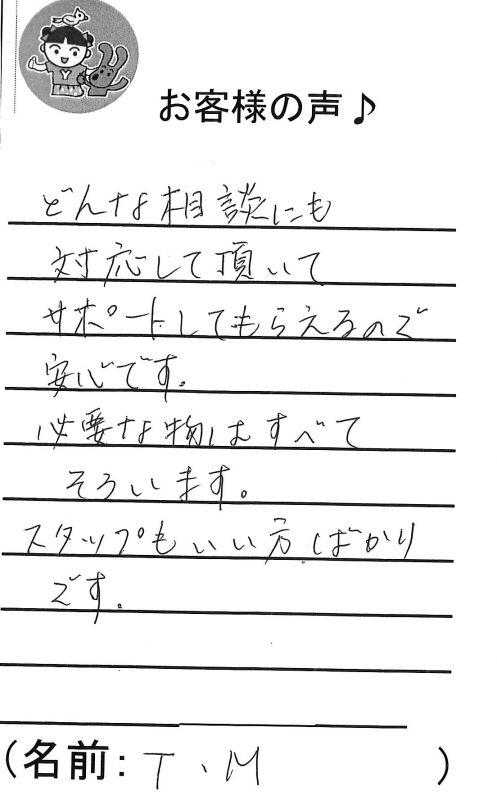 お客様の声♪
どんな相談にも
対応して頂いて
サポートしてもらえるので
安心です。
必要な物はすべて
そろいます。
スタップもいい方ばかり
です。
(名前: T、M )